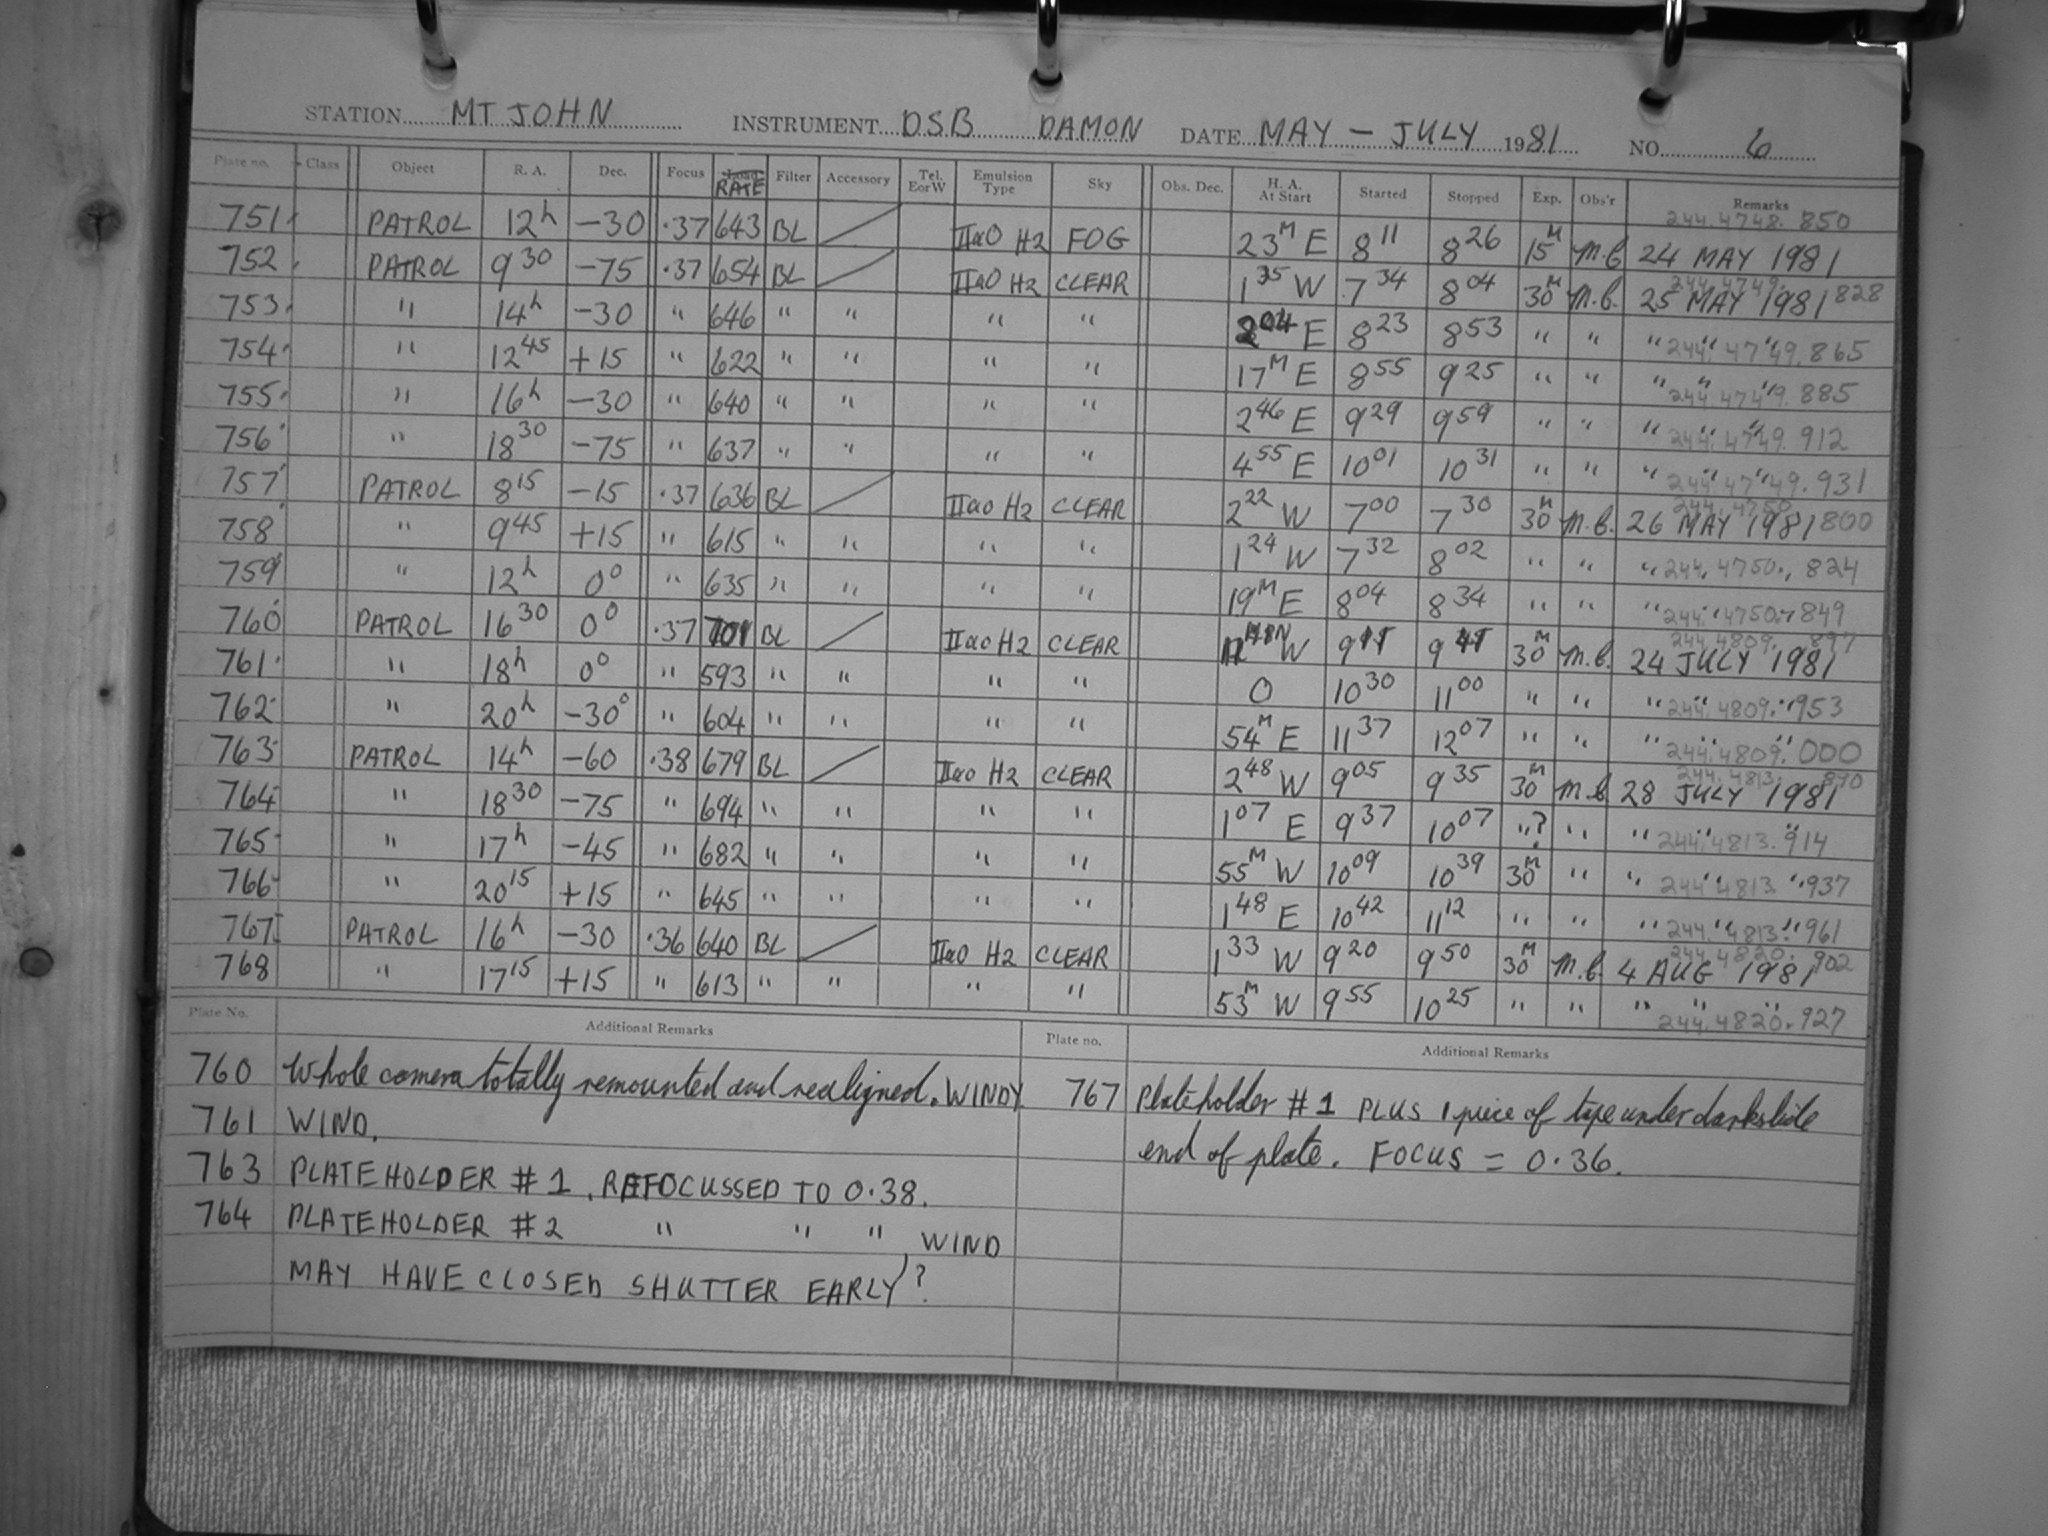 STATION MT JOHN INSTRUMENT DSB DAMON DATE MAY – JULY 1981 NO. 6
Plate no. Class Object R. A. Dec. Focus RATE Filter Accessory Tel. E or W Emulsion Type Sky Obs. Dec. H. A. At Start Started Stopped Exp. Obs'r Remarks
244.4748.850
751 PATROL 12h -30 .37 643 BL IIaO H2 FOG 23M E 8 11 8 26 15M M.B 24 MAY 1981
244.4749.828
752 PATROL 9 30 -75 .37 654 BL IIaO H2 CLEAR 1 35 W 7 34 8 04 30M M.B. 25 MAY 1981
753 " 14h -30 " 646 " " " " 2 04 E 8 23 8 53 " " " " " 244.4749.865
754 " 12 45 +15 " 622 " " " " 17M E 8 55 9 25 " " " " " 244.4749.885
755 " 16h -30 " 640 " " " " 2 46 E 9 29 9 59 " " " " " 244.4749.912
756 " 18 30 -75 " 637 " " " " 4 55 E 10 01 10 31 " " " " " 244.4749.931
244.4750.800
757 PATROL 8 15 -15 .37 636 BL IIaO H2 CLEAR 2 22 W 7 00 7 30 30M M.B. 26 MAY 1981
758 " 9 45 +15 " 615 " " " " 1 24 W 7 32 8 02 " " " 244.4750.824
759 " 12h 0° " 635 " " " " 19M E 8 04 8 34 " " " 244.4750.849
244.4809.897
760 PATROL 16 30 0° .37 701 BL IIaO H2 CLEAR W 9 9 30M M.B. 24 JULY 1981
761 " 18h 0° " 593 " " " " 0 10 30 11 00 " " " " " 244.4809.953
762 " 20h -30° " 604 " " " " 54M E 11 37 12 07 " " " " " 244.4809.000
244.4813.890
763 PATROL 14h -60 .38 679 BL IIaO H2 CLEAR 2 48 W 9 05 9 35 30M M.B 28 JULY 1981
764 " 18 30 -75 " 694 " " " " 1 07 E 9 37 10 07 "? " " " " 244.4813.914
765 " 17h -45 " 682 " " " " 55M W 10 09 10 39 30M " " " " 244.4813.937
766 " 20 15 +15 " 645 " " " " 1 48 E 10 42 11 12 " " " " " 244.4813.961
244.4820.902
767 PATROL 16h -30 .36 640 BL IIaO H2 CLEAR 1 33 W 9 20 9 50 30M M.B. 4 AUG 1981
768 " 17 15 +15 " 613 " " " " 53M W 9 55 10 25 " " " " " 244.4820.927
Plate No. Additional Remarks
760 Whole camera totally remounted and realigned. WINDY.
761 WIND.
763 PLATEHOLDER #1. REFOCUSSED TO 0.38.
764 PLATEHOLDER #2 " " " , WIND
MAY HAVE CLOSED SHUTTER EARLY?
Plate no. Additional Remarks
767 Plateholder #1 PLUS 1 piece of tape under darkslide
end of plate. FOCUS = 0.36.